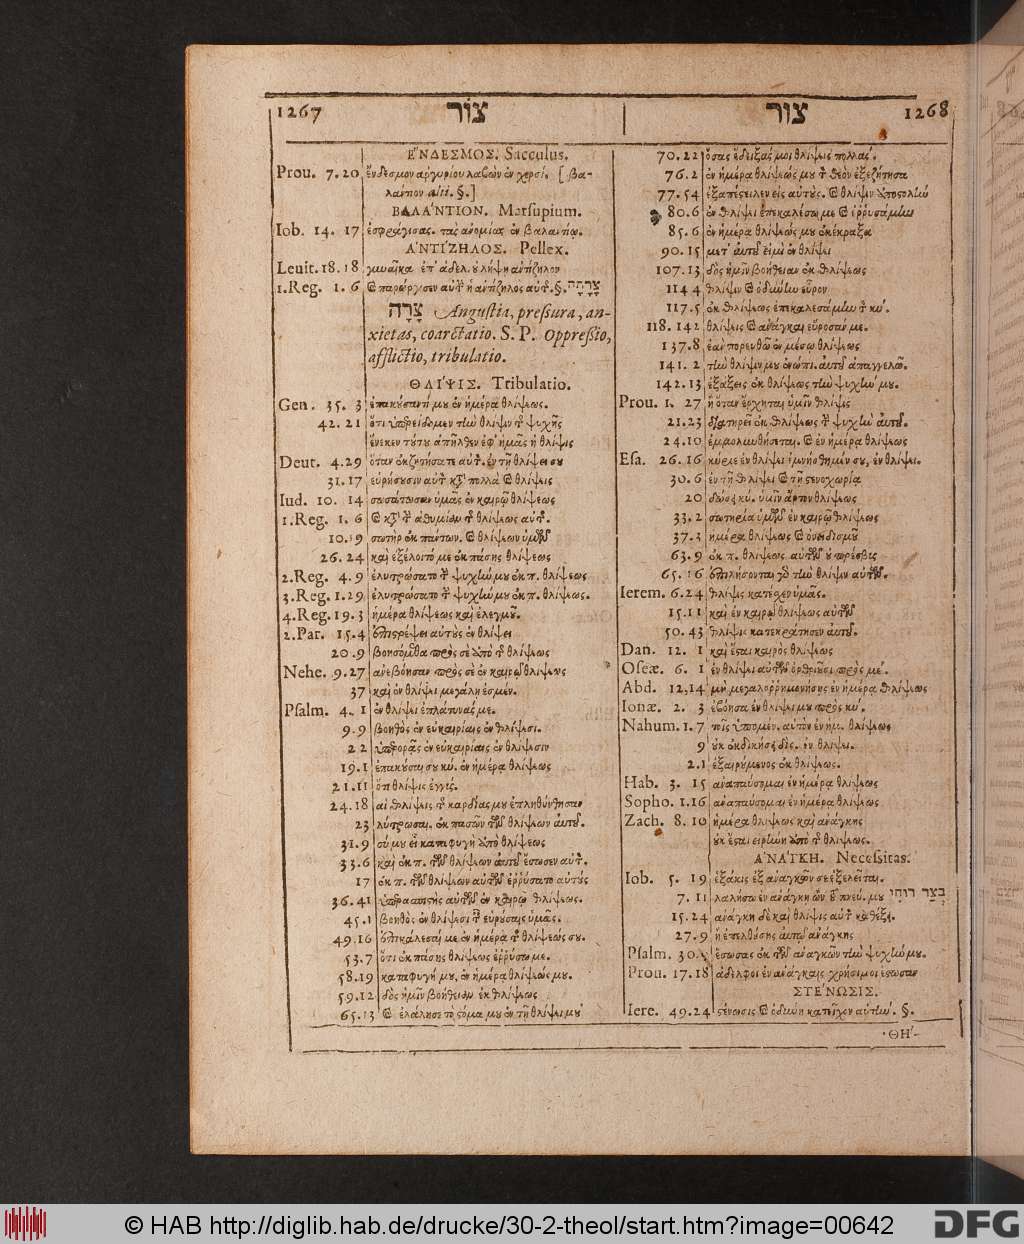 1267 צור
ἜΝΔΕΣΜΟΣ. Sacculus.
Prou. 7.20 ἔνδεσμον ἀργυρίου λαβὼν ἐν χερσί. [βα-
λαύτιον alii. §.]
ΒΑΛΆΝΤΙΟΝ. Marsupium.
Iob. 14. 17 ἐσφράγισας. τὰς ἀνομίας ἐν βαλαντίῳ.
ἈΝΤΊΖΗΛΟΣ. Pellex.
Leuit. 18. 18 γυναῖκα ἐπ' ἀδελ. ὐ λήψῃ ἀντίζηλον
1.Reg. 1. 6 καὶ παρώργισεν αὐτὴν ἡ ἀντίζηλος αὐτ. §. צָרָתָה
צָרָה Angustia, pressura, an-
xietas, coarctatio. S. P. Oppressio,
afflictio, tribulatio.
ΘΛΙΨΙΣ. Tribulatio.
Gen. 35. 3 ἐπακούσαντί μου ἐν ἡμέρᾳ θλίψεως.
42. 21 ὅτι ὑπερείδομεν τὴν θλίψιν τῆς ψυχῆς
ἕνεκεν τούτου ἀπῆλθεν ἐφ' ἡμᾶς ἡ θλίψις
Deut. 4.29 ὅταν ἐκζητήσατε αὐτ. ἐν τῇ θλίψει σου
31.17 εὑρήσουσιν αὐτ. κακὰ πολλὰ καὶ θλίψεις
Iud. 10. 14 σωσάτωσαν ὑμᾶς ἐν καιρῷ θλίψεως
1.Reg. 1. 6 καὶ κατὰ τ. ἀθυμίαν τῆς θλίψεως αὐτ.
10.19 σωτὴρ ἐκ πάντων. καὶ θλίψεων ὑμῶν
26.24 καὶ ἐξέλοιτό με ἐκ πάσης θλίψεως
2.Reg. 4. 9 ἐλυτρώσατο τὴν ψυχήν μου ἐκ π. θλίψεως
3.Reg. 1.29 ἐλυτρώσατο τὴν ψυχήν μου ἐκ π. θλίψεως.
4.Reg. 19. 3 ἡμέρα θλίψεως καὶ ἐλεγμοῦ.
2.Par. 15.4 ἐπιστρέψει αὐτοὺς ἐν θλίψει
20.9 βοησόμεθα πρὸς σὲ ἀπὸ τῆς θλίψεως
Nehe. 9.27 ἀνεβόησαν πρὸς σὲ ἐν καιρῷ θλίψεως
37 καὶ ἐν θλίψει μεγάλῃ ἐσμεν.
Psalm. 4. 1 ἐν θλίψει ἐπλάτυνάς με.
9.9 βοηθὸς ἐν εὐκαιρίαις ἐν θλίψεσι.
22 ὑπερορᾷς ἐν εὐκαιρίαις ἐν θλίψεσιν
19.1 ἐπακούσαι σου κύ. ἐν ἡμέρᾳ θλίψεως
21.11 ὅτι θλίψις ἐγγύς.
24.18 αἱ θλίψεις τῆς καρδίας μου ἐπληθύνθησαν
23 λύτρωσαι. ἐκ πασῶν τῶν θλίψεων αὐτοῦ.
31.9 σύ μου εἶ καταφυγὴ ἀπὸ θλίψεως
33.6 καὶ ἐκ π. τῶν θλίψεων αὐτοῦ ἔσωσεν αὐτ.
17 ἐκ π. τῶν θλίψεων αὐτῶν ἐῤῥύσατο αὐτούς
36.41 ὑπερασπιστὴς αὐτῶν ἐν καιρῷ θλίψεως.
45.1 βοηθὸς ἐν θλίψεσι ταῖς εὑρούσαις ὑμᾶς.
49.16 ἐπικάλεσαί με ἐν ἡμέρᾳ τῆς θλίψεώς σου.
53.7 ὅτι ἐκ πάσης θλίψεως ἐῤῥύσω με.
58.19 καταφυγή μου, ἐν ἡμέρᾳ θλίψεώς μου.
59.12 δὸς ἡμῖν βοήθειαν ἐκ θλίψεως
65.13 καὶ ἐλάλησε τὸ στόμα μου ἐν τῇ θλίψει μου
צור 1268
70.22 ὅσας ἔδειξάς μοι θλίψεις πολλάς.
76.2 ἐν ἡμέρᾳ θλίψεώς μου τὸν θεὸν ἐξεζήτησα
77.54 ἐξαπέστειλεν εἰς αὐτούς. καὶ θλίψιν ἀποστολὴν
80.6 ἐν θλίψει ἐπεκαλέσω με καὶ ἐῤῥυσάμην
85.6 ἐν ἡμέρᾳ θλίψεώς μου ἐκέκραξα
90.15 μετ' αὐτοῦ εἰμὶ ἐν θλίψει
107.13 δὸς ἡμῖν βοήθειαν ἐκ θλίψεως
114 4 θλίψιν καὶ ὀδύνην εὗρον
117.5 ἐκ θλίψεως ἐπεκαλεσάμην τὸν κύ.
118.142 θλίψεις καὶ ἀνάγκαι εὕροσάν με.
137.8 ἐὰν πορευθῶ ἐν μέσῳ θλίψεως
141. 2 τὴν θλίψιν μου ἐνώπι. αὐτοῦ ἀπαγγελῶ.
142.13 ἐξάξεις ἐκ θλίψεως τὴν ψυχήν μου.
Prou. 1. 27 ἢ ὅταν ἔρχηται ὑμῖν θλίψις
21.23 διατηρεῖ ἐκ θλίψεως τὴν ψυχὴν αὐτοῦ.
24.10 ἐμμολυνθήσεται. καὶ ἐν ἡμέρᾳ θλίψεως
Esa. 26.16 κύριε ἐν θλίψει ἐμνήσθημέν σου, ἐν θλίψει.
30.6 ἐν τῇ θλίψει καὶ τῇ στενοχωρίᾳ
20 δώσει κύ. ὑμῖν ἄρτον θλίψεως
33.2 σωτηρία ὑμῶν ἐν καιρῷ θλίψεως
37.3 ἡμέρα θλίψεως καὶ ὀνειδισμοῦ
63.9 ἐκ π. θλίψεως αὐτῶν οὐ πρέσβις
65.16 ἐπιλήσονται γὰρ τὴν θλίψιν αὐτῶν.
Ierem. 6.24 θλίψις κατέσχεν ὑμᾶς.
15.11 καὶ ἐν καιρῷ θλίψεως αὐτῶν
50.43 θλίψις κατεκράτησεν αὐτοῦ.
Dan. 12. 1 καὶ ἔσται καιρὸς θλίψεως
Oseæ. 6. 1 ἐν θλίψει αὐτῶν ὀρθριοῦσι πρὸς μέ.
Abd. 12,14 μὴ μεγαλοῤῥημονήσῃς ἐν ἡμέρᾳ θλίψεως
Ionæ. 2. 3 ἐβόησα ἐν θλίψει μου πρὸς κύ.
Nahum. 1.7 τοῖς ὑπομέν. αὐτὸν ἐν ἡμ. θλίψεως
9 οὐκ ἐκδικήσει δὶς. ἐν θλίψει.
2.1 ἐξαιρούμενος ἐκ θλίψεως.
Hab. 3. 15 ἀναπαύσομαι ἐν ἡμέρᾳ θλίψεως
Sopho. 1.16 ἀναπαύσομαι ἐν ἡμέρᾳ θλίψεως
Zach. 8.10 ἡμέρα θλίψεως καὶ ἀνάγκης
οὐκ ἔσται εἰρήνη ἀπὸ τῆς θλίψεως.
ἈΝΆΓΚΗ. Necessitas.
Iob. 5. 19 ἑξάκις ἐξ ἀναγκῶν σε ἐξελεῖται.
7. 11 λαλήσω ἐν ἀνάγκῃ ὢν τοῦ πνεύ. μου בְּצַר רוּחִי
15.24 ἀνάγκη δὲ καὶ θλίψις αὐτ. καθέξει.
27.9 ἢ ἐπελθούσης αὐτῷ ἀνάγκης
Psalm. 30. ἔσωσας ἐκ τῶν ἀναγκῶν τὴν ψυχήν μου.
Prou. 17.18 ἀδελφοὶ ἐν ἀνάγκαις χρήσιμοι ἔστωσαν
ΣΤΕΝΩΣΙΣ.
Iere. 49.24 στένωσις καὶ ὀδύνη κατεῖχον αὐτήν. §.
ΘΗ-
© HAB http://diglib.hab.de/drucke/30-2-theol/start.htm?image=00642
DFG